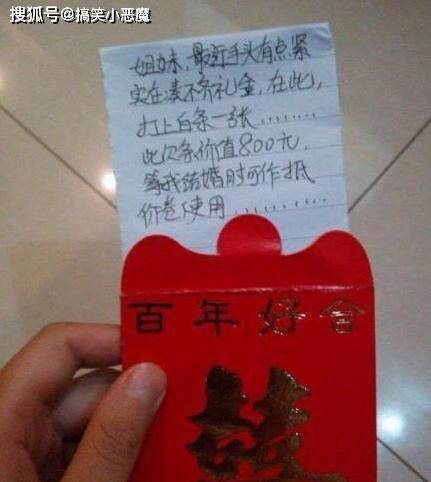 搜狐号@搞笑小恶魔
姐妹，最近手头有点紧
实在凑不齐礼金，在此，
打上白条一张………
此欠条价值800元，
等我结婚时可作抵
价卷使用………
百年好合
囍